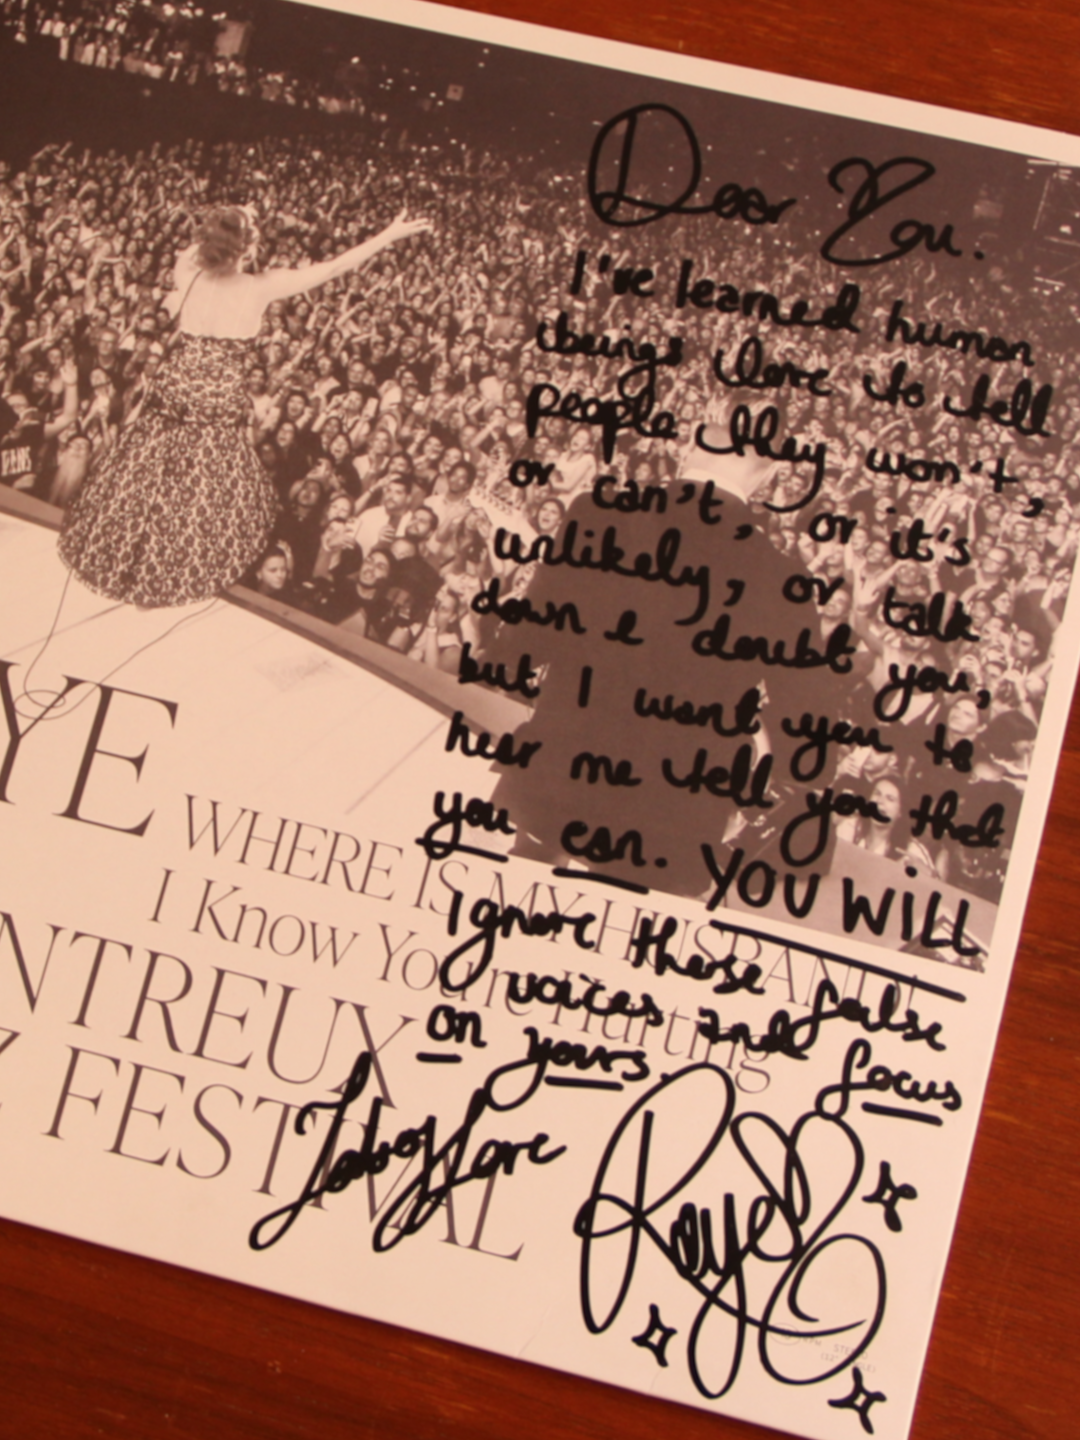 Dear You.
I've learned human
beings love to tell
people they won't,
or can't, or it's
unlikely, or talk
down & doubt you,
but I want you to
hear me tell you that
you can. YOU WILL
ignore these false
voices and focus
on yours.
Lots of Love
Raye
YE
WHERE IS MY HUSBAND!
I Know You're Hurting
NTREUX
Z FESTIVAL
VANS